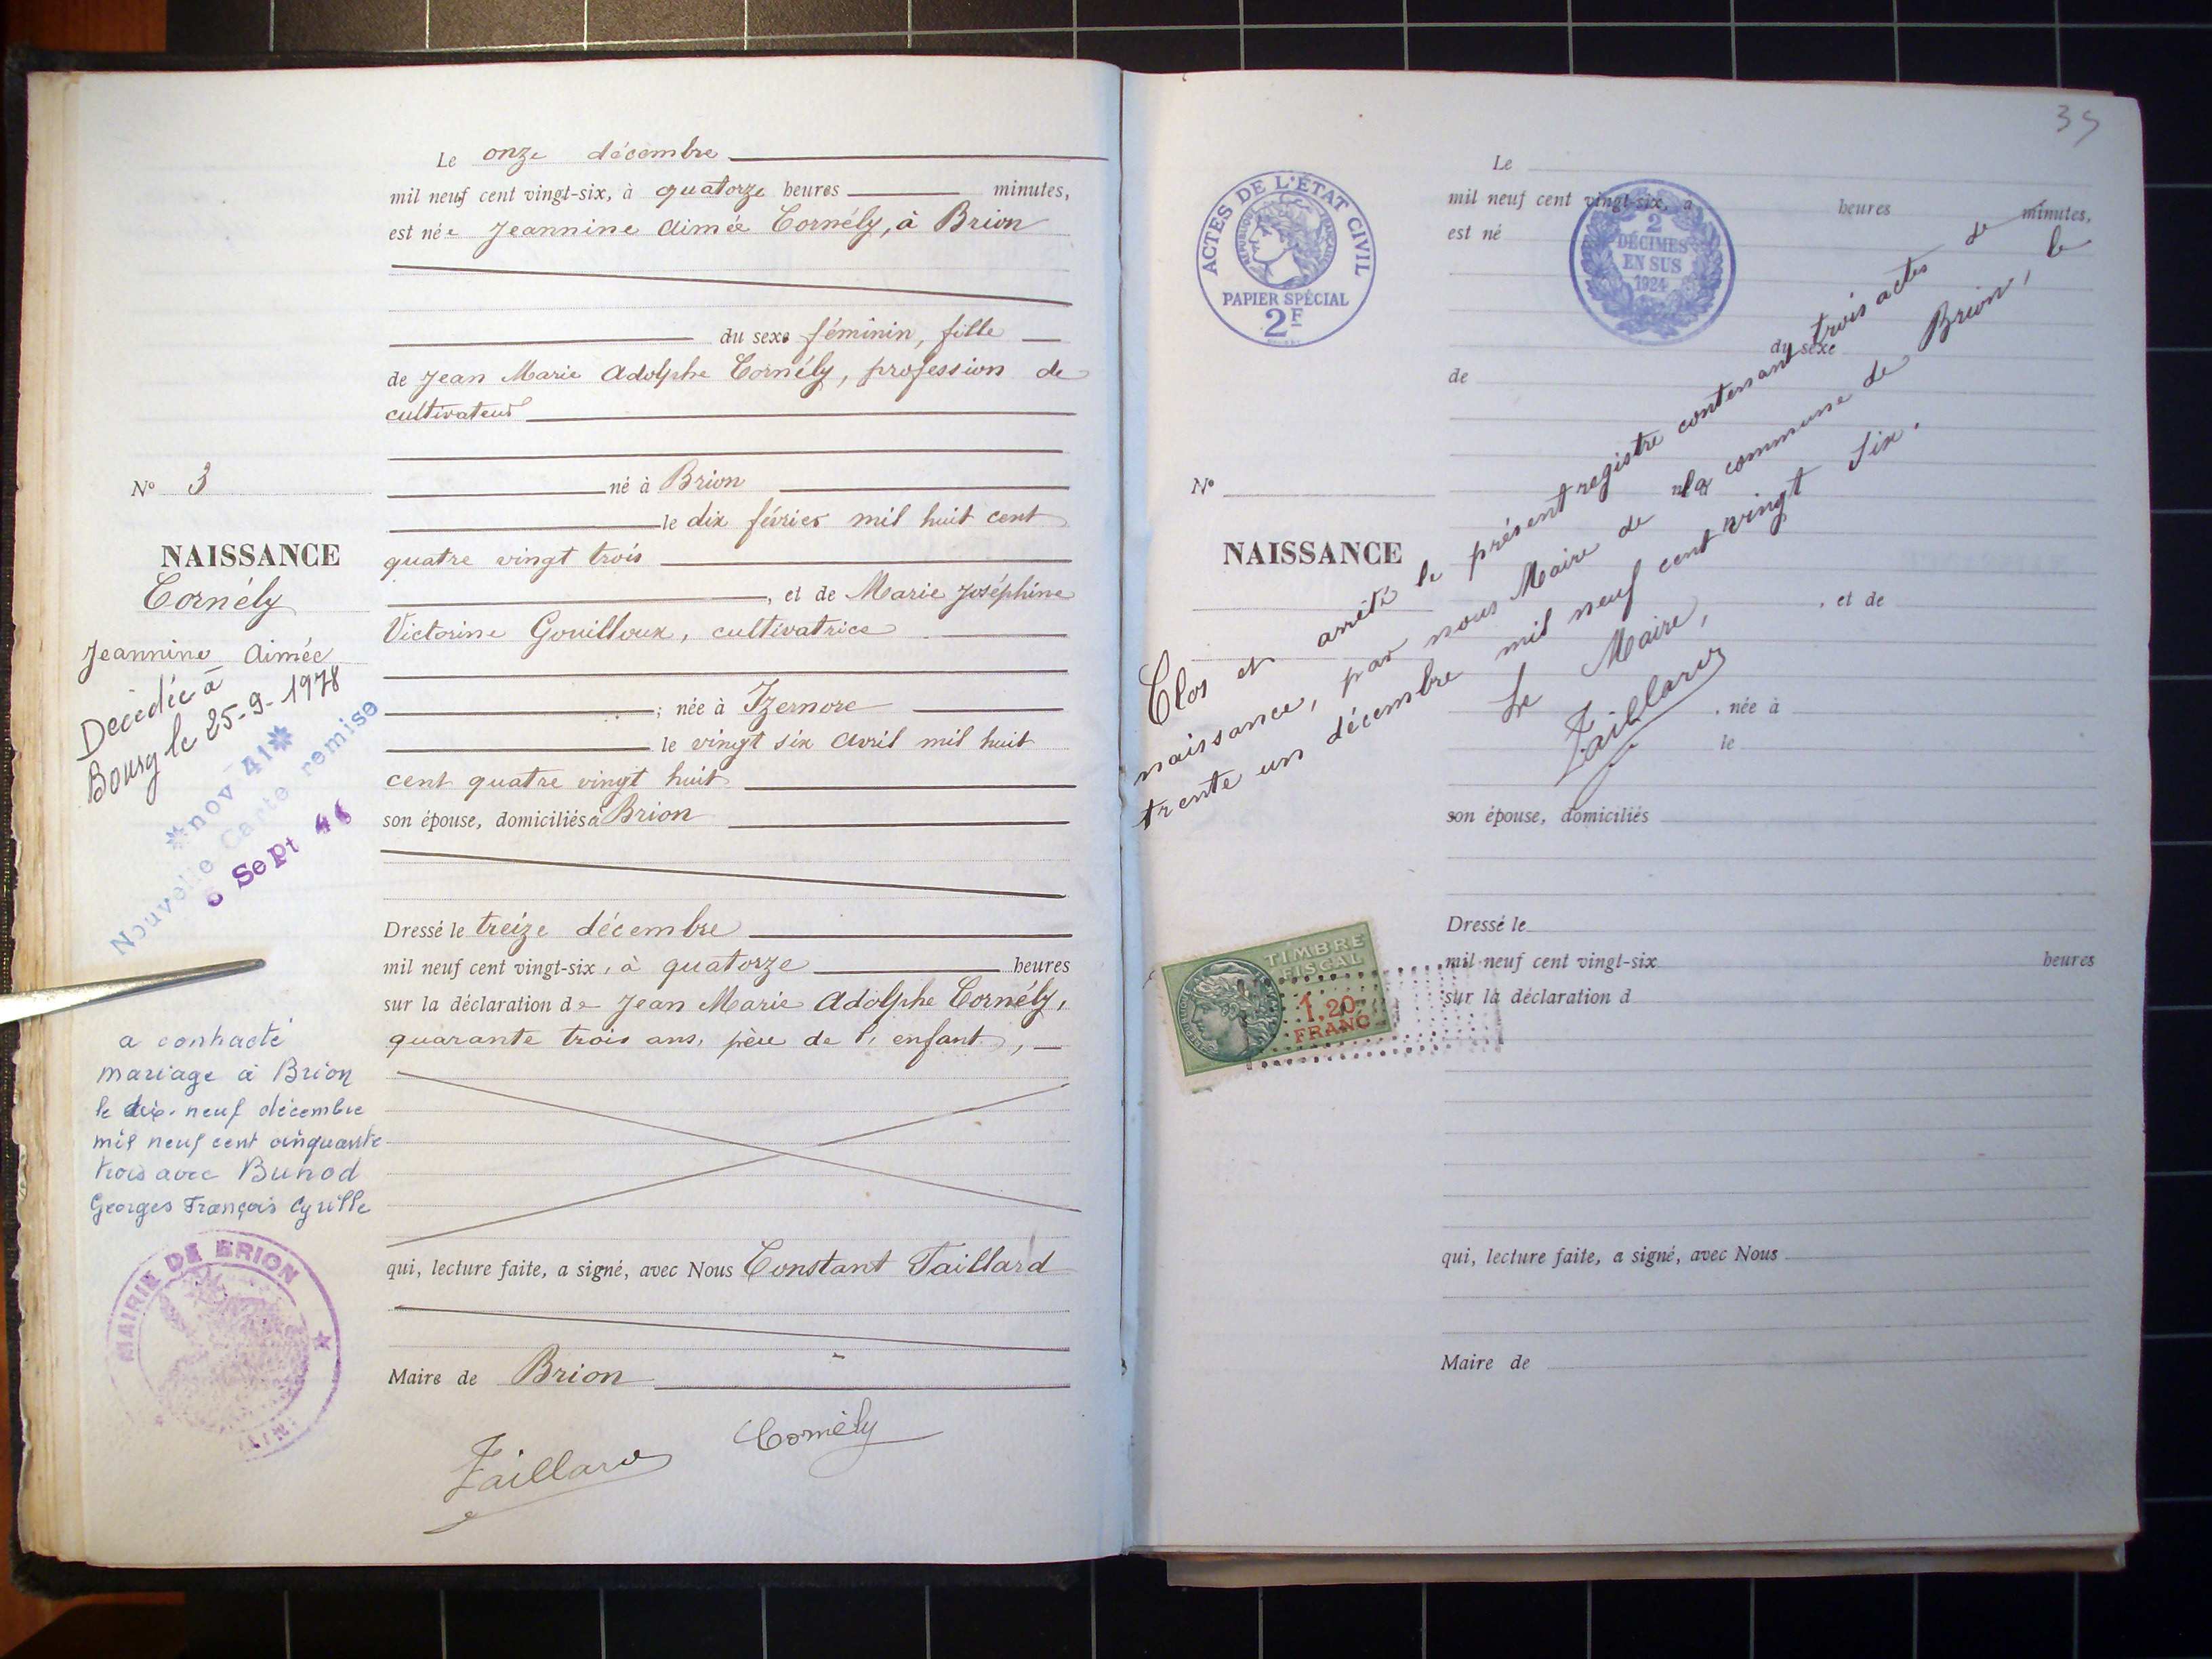 Le onze décembre
mil neuf cent vingt-six, à quatorze heures minutes,
est née Jeannine Aimée Cornély, à Brion
du sexe féminin, fille
de Jean Marie Adolphe Cornély, profession de
cultivateur
né à Brion
le dix février mil huit cent
quatre vingt trois
, et de Marie Joséphine
Victorine Gouilloux, cultivatrice
; née à Izernore
le vingt six avril mil huit
cent quatre vingt huit
son épouse, domiciliés à Brion
Dressé le treize décembre
mil neuf cent vingt-six, à quatorze heures
sur la déclaration de Jean Marie Adolphe Cornély,
quarante trois ans, père de l'enfant,
qui, lecture faite, a signé, avec Nous Constant Taillard
Maire de Brion
Taillard
Cornély
N° 3
NAISSANCE
Cornély
Jeannine Aimée
Decédée à
Bourg le 25-9-1978
nov 41
Nouvelle Carte remise
Sept 46
a contracté
mariage à Brion
le dix-neuf décembre
mil neuf cent cinquante
trois avec Bunod
Georges François Cyrille
MAIRIE DE BRION
(AIN)
39
ACTES DE L'ÉTAT CIVIL
RÉPUBLIQUE FRANÇAISE
PAPIER SPÉCIAL
2F
2
DÉCIMES
EN SUS
1924
Le
mil neuf cent vingt-six, à heures minutes,
est né
du sexe
de
N°
NAISSANCE
, et de
, née à
le
son épouse, domiciliés
Dressé le
mil neuf cent vingt-six heures
sur la déclaration d
qui, lecture faite, a signé, avec Nous
Maire de
Clos et arrêté le présent registre contenant trois actes de
naissance, par nous Maire de la commune de Brion, le
trente un décembre mil neuf cent vingt six.
Le Maire,
Taillard
TIMBRE
FISCAL
1,20
FRANC